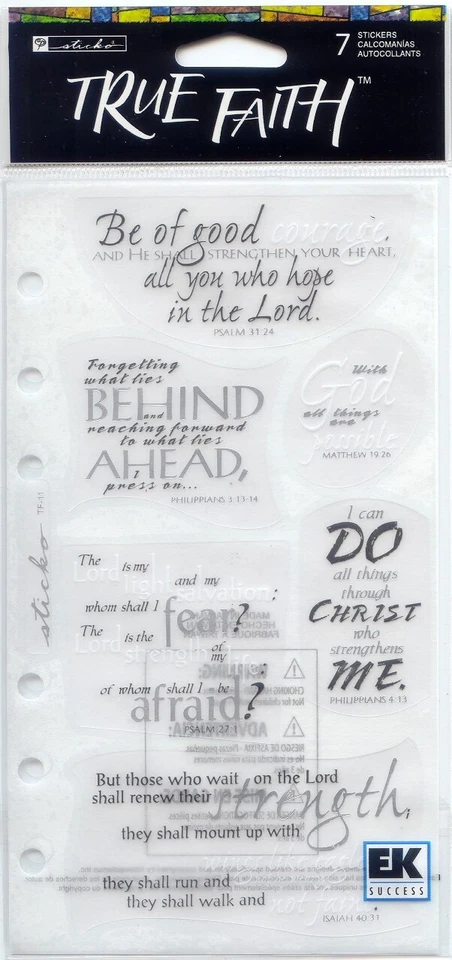 sticko
7 STICKERS
CALCOMANÍAS
AUTOCOLLANTS
TRUE FAITH™
Be of good courage,
AND HE SHALL STRENGTHEN YOUR HEART,
all you who hope
in the Lord.
PSALM 31:24
Forgetting
what lies
BEHIND
and
reaching forward
to what lies
AHEAD,
I
press on...
PHILIPPIANS 3:13-14
With
God
all things
are
possible
MATTHEW 19:26
I can
DO
all things
through
CHRIST
who
strengthens
ME.
PHILIPPIANS 4:13
sticko TF-11
The Lord is my light and my salvation;
whom shall I fear?
The Lord is the strength of my life
of whom shall I be afraid?
PSALM 27:1
But those who wait on the Lord
shall renew their strength,
they shall mount up with
they shall run and
they shall walk and not faint.
ISAIAH 40:31
EK
SUCCESS